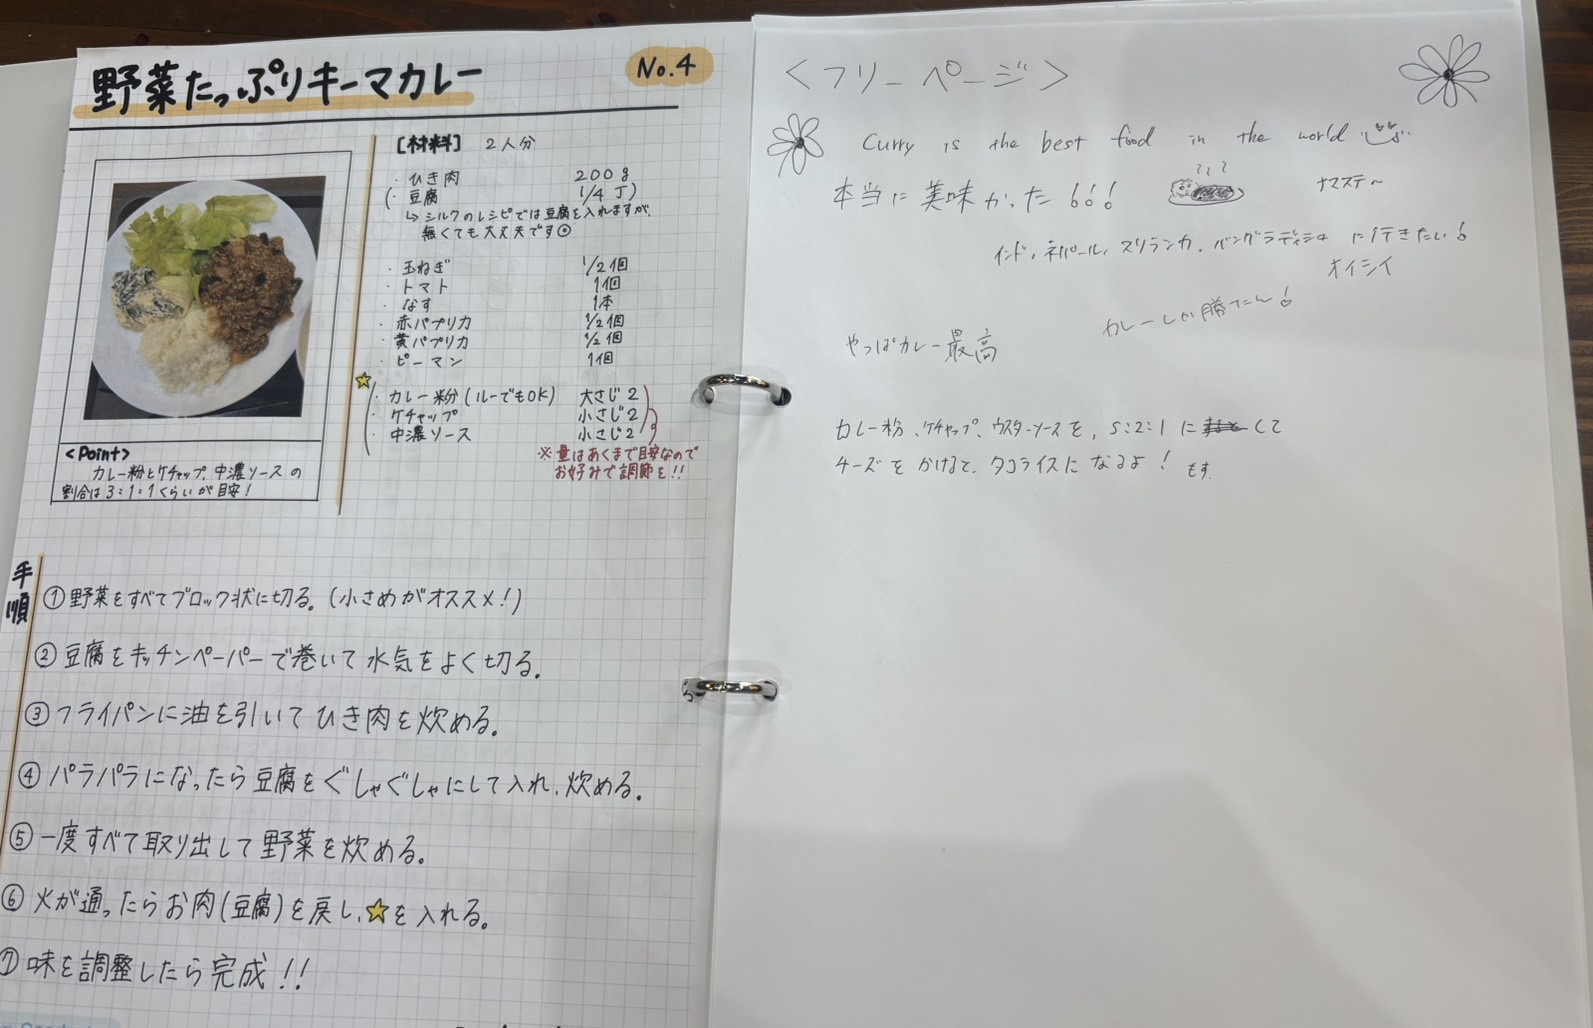 野菜たっぷりキーマカレー
No.4
[材料] 2人分
・ひき肉 200g
(・豆腐 1/4丁)
↳シルクのレシピでは豆腐を入れますが、
無くても大丈夫です◎
・玉ねぎ 1/2個
・トマト 1個
・なす 1本
・赤パプリカ 1/2個
・黄パプリカ 1/2個
・ピーマン 1個
・カレー粉(ルーでもOK) 大さじ2
・ケチャップ 小さじ2
・中濃ソース 小さじ2
※量はあくまで目安なので
お好みで調節を!!
<Point>
カレー粉とケチャップ、中濃ソースの
割合は3:1:1くらいが目安!
手順
①野菜をすべてブロック状に切る。(小さめがオススメ!)
②豆腐をキッチンペーパーで巻いて水気をよく切る。
③フライパンに油を引いてひき肉を炒める。
④パラパラになったら豆腐をぐしゃぐしゃにして入れ、炒める。
⑤一度すべて取り出して野菜を炒める。
⑥火が通ったらお肉(豆腐)を戻し、★を入れる。
⑦味を調整したら完成!!
<フリーページ>
Curry is the best food in the world
本当に美味かった!!!
ナマステ~
インド、ネパール、スリランカ、バングラディシュに行きたい!
オイシイ
カレーしか勝たん!
やっぱカレー最高
カレー粉、ケチャップ、ウスターソースを、5:2:1にして
チーズをかけると、タコライスになるよ!